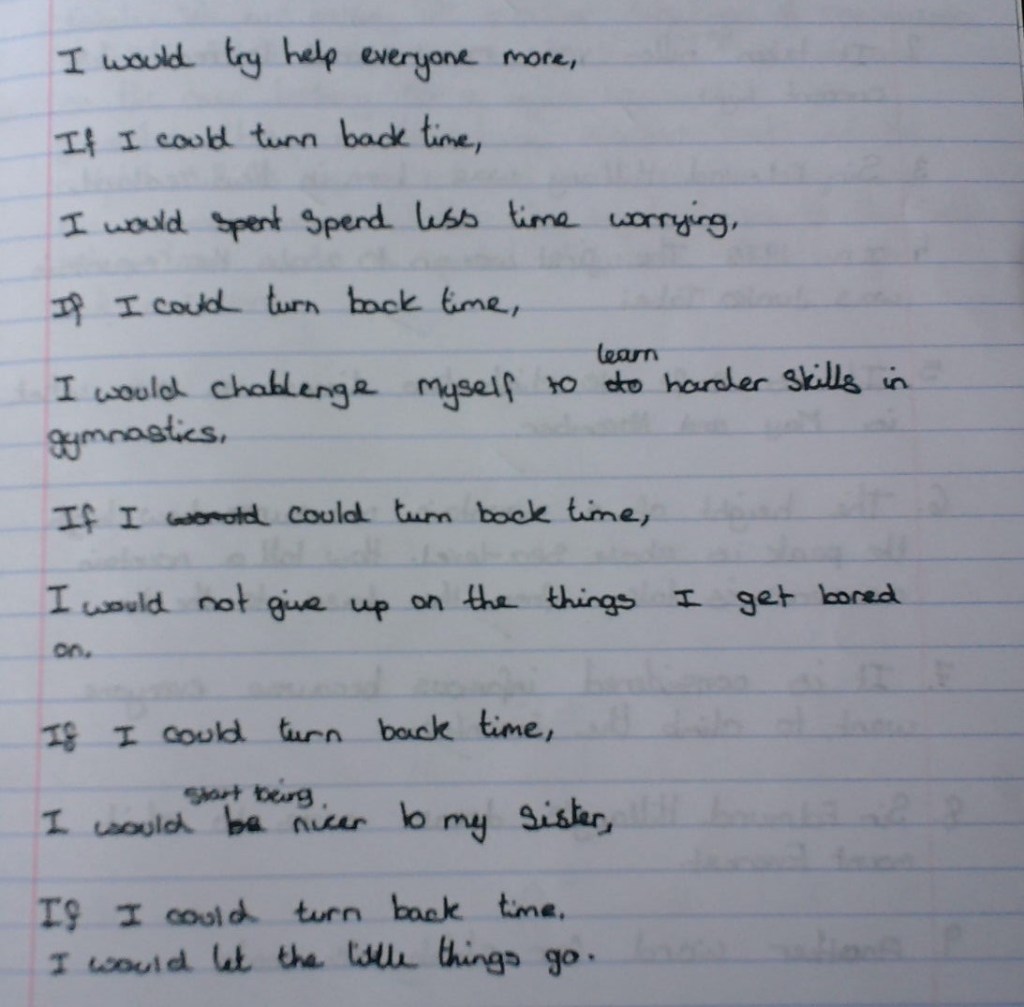 I would try help everyone more,
If I could turn back time,
I would spent spend less time worrying,
If I could turn back time,
learn
I would challenge myself to do harder skills in
gymnastics,
If I would could turn back time,
I would not give up on the things I get bored
on.
If I could turn back time,
start being
I would be nicer to my sister,
If I could turn back time.
I would let the little things go.